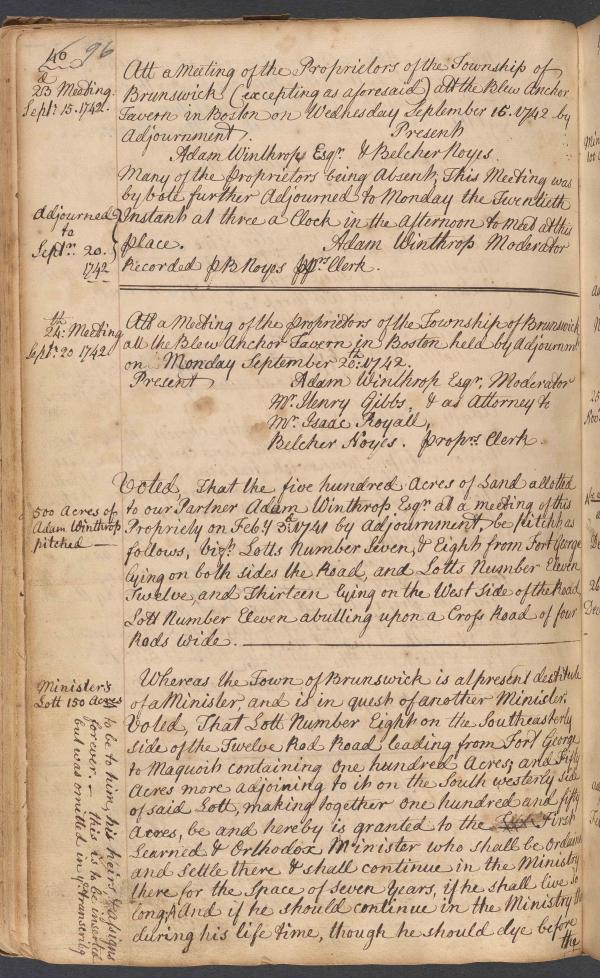 46 96
23d Meeting.
Sept.r 15. 1742.
Att a Meeting of the Proprietors of the Township of
Brunswick (excepting as aforesaid) att the Blew Anchor
Tavern in Boston on Wednesday September 15. 1742 by
Adjournment.
Present
Adam Winthrop Esqr. & Belcher Noyes.
Many of the Proprietors being Absent, This Meeting was
by vote further Adjourned to Monday the Twentieth
Instant at three a Clock in the Afternoon to meet at this
place.
Adam Winthrop Moderator
Recorded p B Noyes pprs Clerk.
Adjourned
to
Septr. 20.
1742
24th: Meeting
Septr. 20 1742
Att a Meeting of the Proprietors of the Township of Brunswick
att the Blew Anchor Tavern in Boston held by Adjournmt.
on Monday September 20th: 1742.
Present
Adam Winthrop Esqr. Moderator
Mr. Henry Gibbs, & as Attorney to
Mr. Isaac Royall,
Belcher Noyes. Proprs Clerk.
500 Acres of
Adam Winthrop
pitched
Voted, That the five hundred Acres of Land allotted
to our Partner Adam Winthrop Esqr at a meeting of this
Propriety on Feby 3d 1741 by adjournment, be pitcht as
follows, vizt. Lotts Number Seven, & Eight from Fort George
lying on both sides the Road, and Lotts Number Eleven
Twelve, and Thirteen lying on the West side of the Road
Lott Number Eleven abutting upon a Cross Road of four
Rods wide.
Minister's
Lott 150 Acres
Whereas the Town of Brunswick is at present destitute
of a Minister, and is in quest of another Minister.
Voted, That Lott Number Eight on the Southeasterly
side of the Twelve Rod Road, leading from Fort George
to Maquoit containing one hundred Acres; and Fifty
Acres more adjoining to it on the South westerly side
of said Lott, making together one hundred and fifty
Acres, be and hereby is granted to the First
Learned & Orthodox Minister who shall be Ordaind
and Settle there & shall continue in the Ministry
there for the Space of seven Years, if he shall live so
long. And if he should continue in the Ministry
during his life time, though he should dye before
the
to be to him, his heirs, & assigns
forever. - this is to be inserted
but was omitted in ye. transcribing